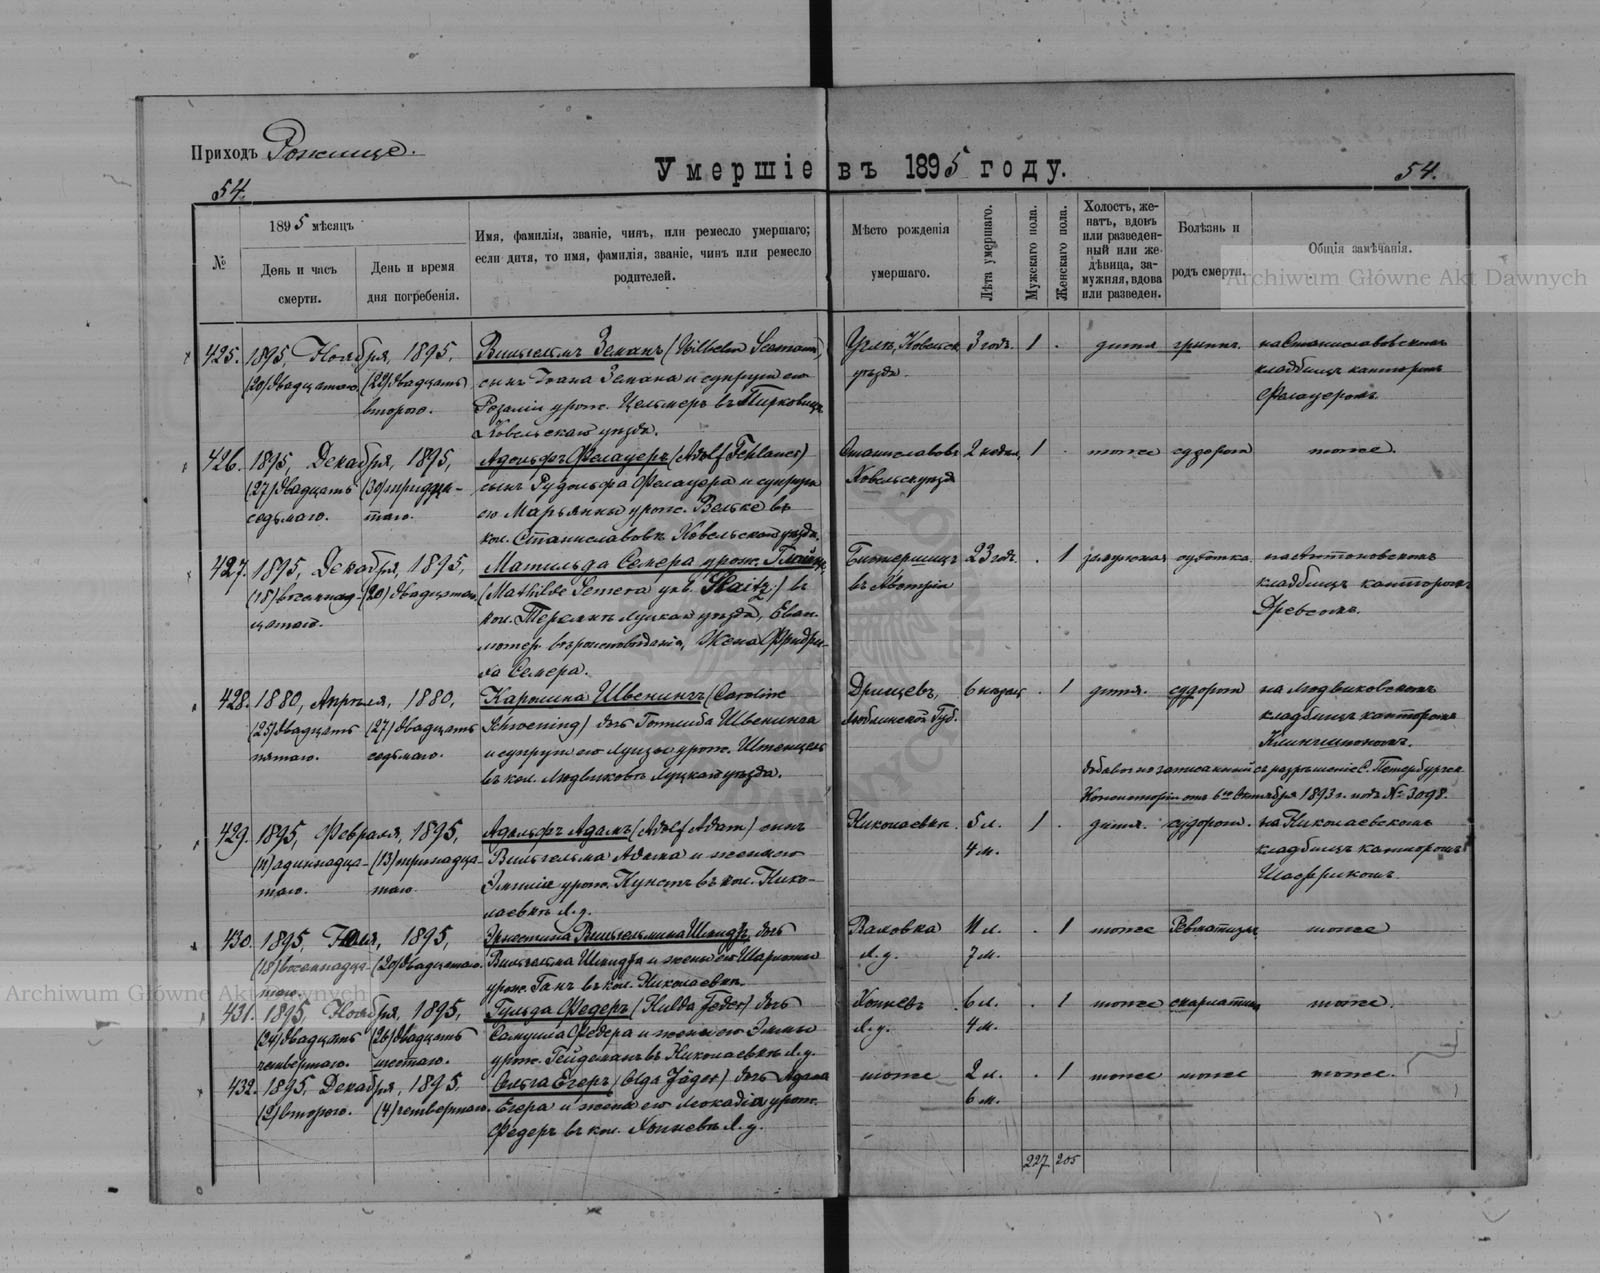 Приходъ Рожище.
Умершіе въ 1895 году.
54.
54.
№
1895 мѣсяцъ
День и часъ смерти.
День и время дня погребенія.
Имя, фамилія, званіе, чинъ, или ремесло умершаго;
если дитя, то имя, фамилія, званіе, чинъ или ремесло
родителей.
Мѣсто рожденія
умершаго.
Лѣта умершаго.
Мужскаго пола.
Женскаго пола.
Холостъ, же-
натъ, вдовъ
или разведен-
ный или же
дѣвица, за-
мужняя, вдова
или разведен.
Болѣзнь и
родъ смерти.
Общія замѣчанія.
Archiwum Główne Akt Dawnych
425. 1895, Ноября, 1895, Вильгельмъ Земанъ (Wilhelm Seemann), Ковельск. 3 годъ. 1 . дитя гриппъ. на Станиславовскомъ
(20) двадцатаго. (22) двадцать сынъ Іоана Земана и супруги его уѣзда. кладбищѣ канторомъ
втораго. Розаліи урож. Цельмеръ въ Фелауеромъ.
Ковельскаго уѣзда.
426. 1895, Декабря, 1895, Адольфъ Фелауеръ (Adolf Fehlauer) Станиславовъ 2 недѣл. 1 . тоже судороги тоже.
(27) двадцать (30) тридца- сынъ Рудольфа Фелауера и супруги Ковельск уѣзд
седьмаго. таго. его Марьянны урож. Вельке въ
кол. Станиславовкѣ Ковельскаго уѣзда.
427. 1895, Декабря, 1895, Матильда Семера урож. (Mathilde Semera 23 годъ . 1 замужная сухотка на Антоновскомъ
(18) восемнад- (20) двадцатаго. въ въ Австріи кладбищѣ канторомъ
цатаго. кол. Луцкаго уѣзда, Еван. Древсомъ.
лютер. вѣроисповѣданія, Жена Фридри-
ха Семера.
428. 1880, Апрѣля, 1880, Каролина Швенингъ (Caroline 6 недѣль . 1 дитя. судороги на Людвиковскомъ
(25) двадцать (27) двадцать Schwening) дочь Готлиба Швенинга Люблинской Губ. кладбищѣ канторомъ
пятаго. седьмаго. и супруги его Луизы урож. Штенцель
въ кол. Людвиковкѣ Луцкаго уѣзда.
добавочно записанный съ разрѣшенія С. Петербургск.
Консисторіи отъ 6го Октября 1893 г. подъ № 3098.
429. 1895, Февраля, 1895, Адольфъ Адамъ (Adolf Adam) сынъ Николаевкѣ. 5 л. 1 . дитя. судорог. на Николаевскомъ
(11) одиннадца- (13) тринадца- Вильгельма Адама и жены его 4 м. кладбищѣ канторомъ
таго. таго. Эмиліи урож. Кунстъ въ кол. Нико- Шаффрикомъ.
лаевкѣ Л. у.
430. 1895, Юля, 1895, Эрнестина Вильгельмина Шмидтъ дочь Валовка 11 л. . 1 тоже Ревматизм. тоже
(18) восемнадца- (20) двадцатаго. Вильгельма Шмидта и жены его Шарлоты Л. у. 7 м.
таго. урож. Ганъ въ кол. Николаевкѣ.
Archiwum Główne Akt Dawnych
431. 1895, Ноября, 1895, Гульда Федеръ (Hulda Feder) дочь 6 л. . 1 тоже скарлатина тоже.
(24) двадцать (26) двадцать Самуила Федера и жены его Эммы Л. у. 4 м.
четвертаго. шестаго. урож. Гейдеманъ въ Николаевкѣ Л. у.
432. 1895, Декабря, 1895, Ольга Егеръ (Olga Jäger) дочь Адама тоже 2 л. . 1 тоже тоже тоже.
(2) втораго. (4) четвертаго. Егера и жены его Леокадіи урож. 6 м.
Федеръ въ кол. Л. у.
227 205